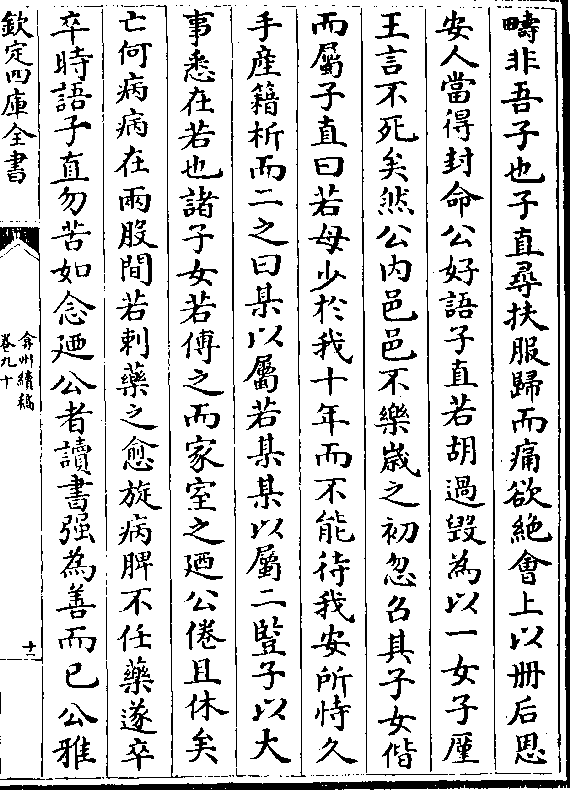 疇非吾子也子直尋扶服歸而痛欲絶會上以册后恩
安人當得封命公好語子直若胡過毁為以一女子厪
王言不死矣然公内邑邑不樂嵗之初忽召其子女偕
而屬子直曰若母少於我十年而不能待我安所恃久
手産籍析而二之曰某以屬若某某以屬二豎子以大
事悉在若也諸子女若傅之而家室之廼公倦且休矣
亡何病病在兩股間若刺藥之愈旋病脾不任藥遂卒
卒時語子直勿苦如念廼公者讀書强為善而已公雅
欽定四庫全書
弇州續稿
卷九十
十一